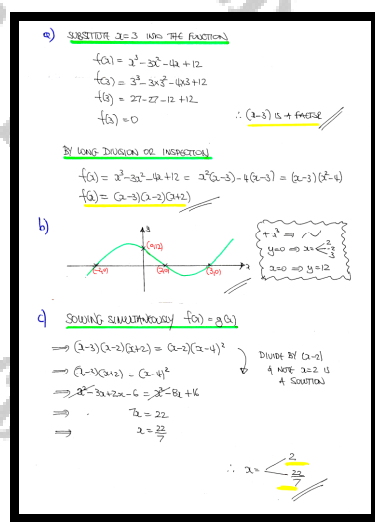 a) SUBSTITUTE x=3 INTO THE FUNCTION
f(x) = x³-3x²-4x+12
f(3) = 3³-3×3²-4×3+12
f(3) = 27-27-12+12
f(3) = 0
∴ (x-3) IS A FACTOR
BY LONG DIVISION OR INSPECTION
f(x) = x³-3x²-4x+12 = x²(x-3)-4(x-3) = (x-3)(x²-4)
f(x) = (x-3)(x-2)(x+2)
b)
y
(0,12)
(-2,0) (2,0) (3,0) x
+x³ ⇒
y=0 ⇒ x= 2 -2 3
x=0 ⇒ y=12
c) SOLVING SIMULTANEOUSLY f(x) = g(x)
⇒ (x-3)(x-2)(x+2) = (x-2)(x-4)²
DIVIDE BY (x-2)
& NOTE x=2 IS
A SOLUTION
⇒ (x-3)(x+2) = (x-4)²
⇒ x²-3x+2x-6 = x²-8x+16
⇒ 7x = 22
⇒ x = 22/7
∴ x = 2
22/7